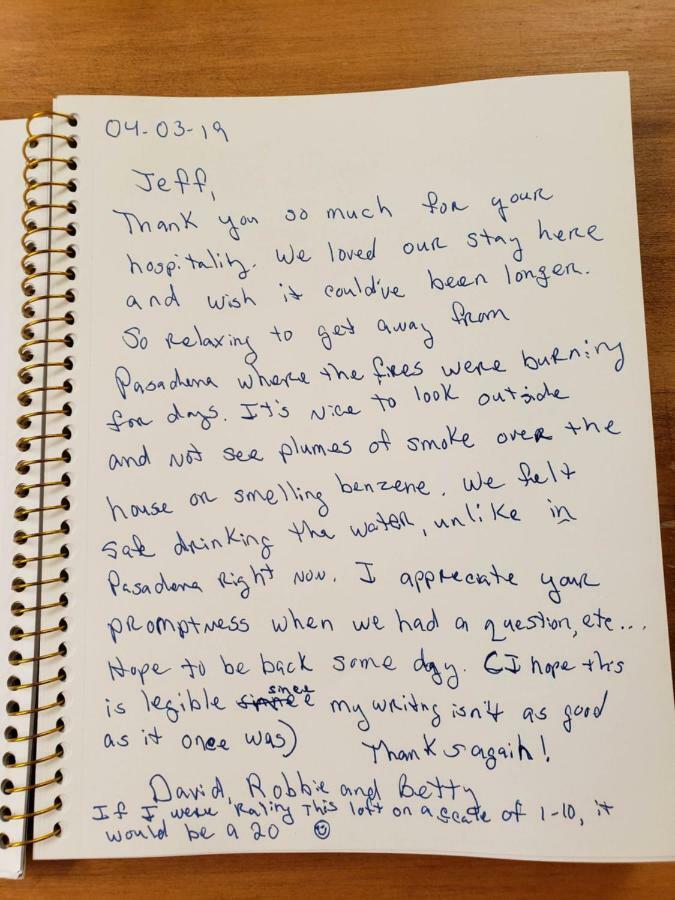 04-03-19
Jeff,
Thank you so much for your
hospitality. We loved our stay here
and wish it could've been longer.
So relaxing to get away from
Pasadena where the fires were burning
for days. It's nice to look outside
and not see plumes of smoke over the
house or smelling benzene. We felt
safe drinking the water, unlike in
Pasadena right now. I appreciate your
promptness when we had a question, etc...
Hope to be back some day. (I hope this
is legible since my writing isn't as good
as it once was) Thanks again!
David, Robbie and Betty
If I were rating this loft on a scale of 1-10, it
would be a 20 ☺